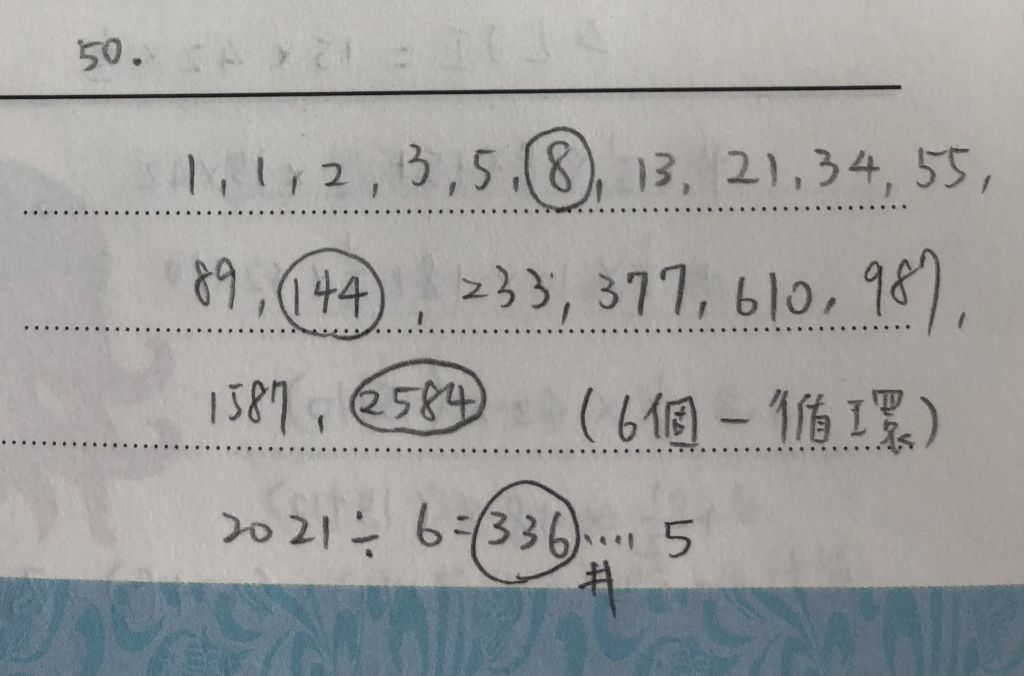 50.
1, 1, 2, 3, 5, 8, 13, 21, 34, 55,
89, 144, 233, 377, 610, 987,
1587, 2584 (6個一循環)
2021÷6=336....5
#